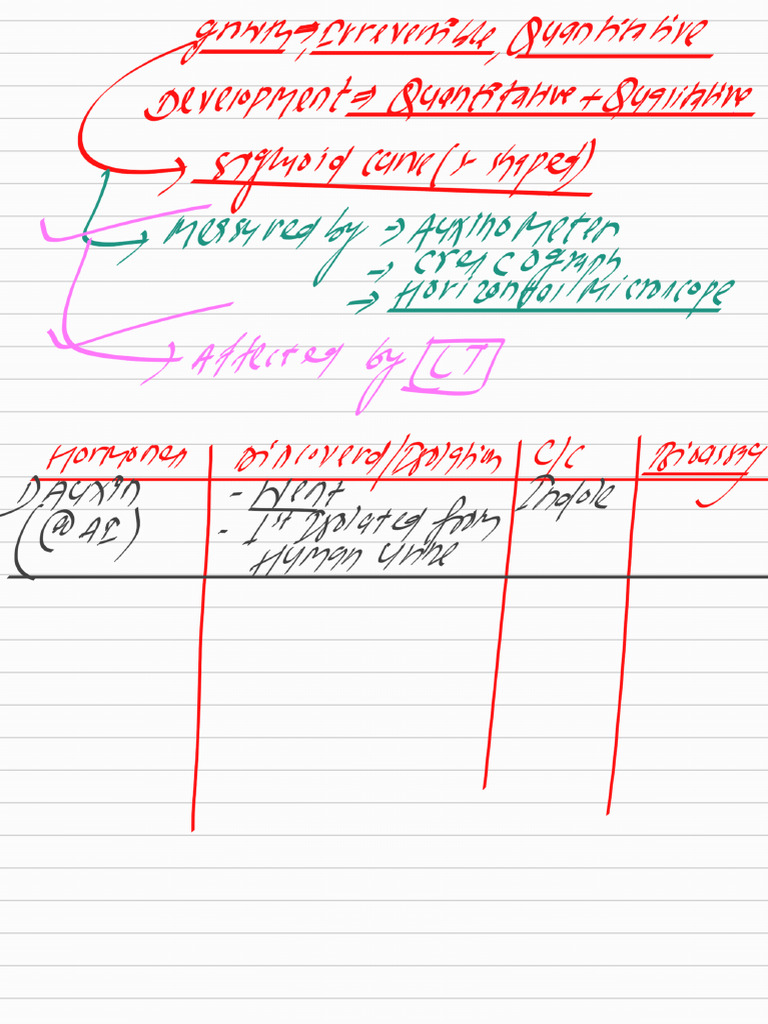 Growth ⇒ Irreversible, Quantitative
Development ⇒ Quantitative + Qualitative
Sigmoid curve (s shaped)
Measured by → Auxinometer
→ Crescograph
→ Horizontal Microscope
Affected by
Hormones Discovered/Isolation C/C Bioassay
1) Auxin - Went Indole
- 1st Isolated from
Human Urine